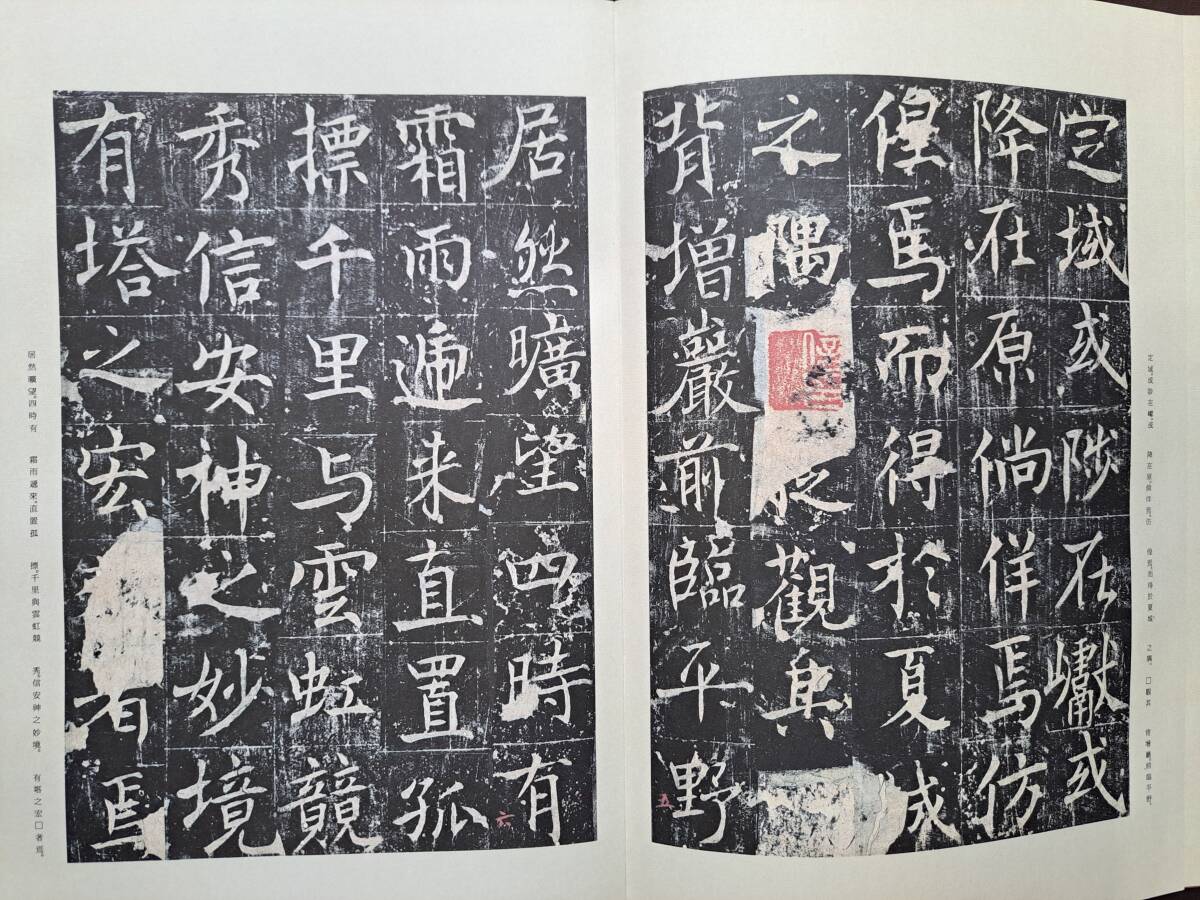 定域或陟在巘或
降在原倘佯焉仿
偟焉而得於夏城
之隅
觀其
背增巖前臨平野
五
定域。或陟在巘。或　降在原。倘佯焉。仿　偟焉。而得於夏城　之隅。□觀其　背增巖。前臨平野。
居然曠望四時有
六
霜雨遞来直置孤
摽千里与雲虹競
秀信安神之妙境
有塔之宏
者焉
居然曠望。四時有　霜雨遞來。直置孤　標。千里與雲虹競　秀。信安神之妙境。　有塔之宏□者焉。